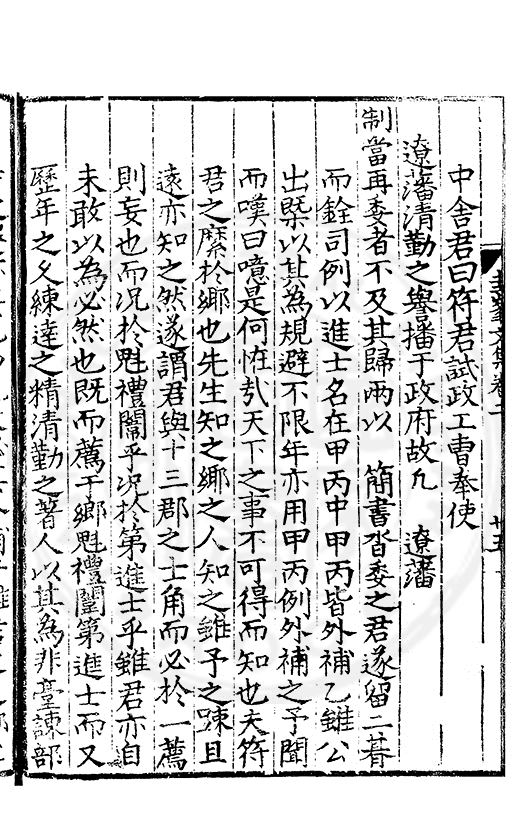 中舍君曰符君試政工曹奉使
遼藩清勤之譽播于政府故凡　遼藩
制當再委者不及其歸兩以　簡書沓委之君遂留二朞
而銓司例以進士名在甲丙中甲丙皆外補乙雖公
出槩以其為規避不限年亦用甲丙例外補之予聞
而嘆曰噫是何恠㢤天下之事不可得而知也夫符
君之縻於鄉也先生知之鄉之人知之雖予之踈且
遠亦知之然遂謂君與十三郡之士角而必於一薦
則妄也而况於魁禮闈乎况於第進士乎雖君亦自
未敢以為必然也既而薦于鄉魁禮闈第進士而又
歷年之久練達之精清勤之著人以其為非臺諫部
文集卷二
廿五